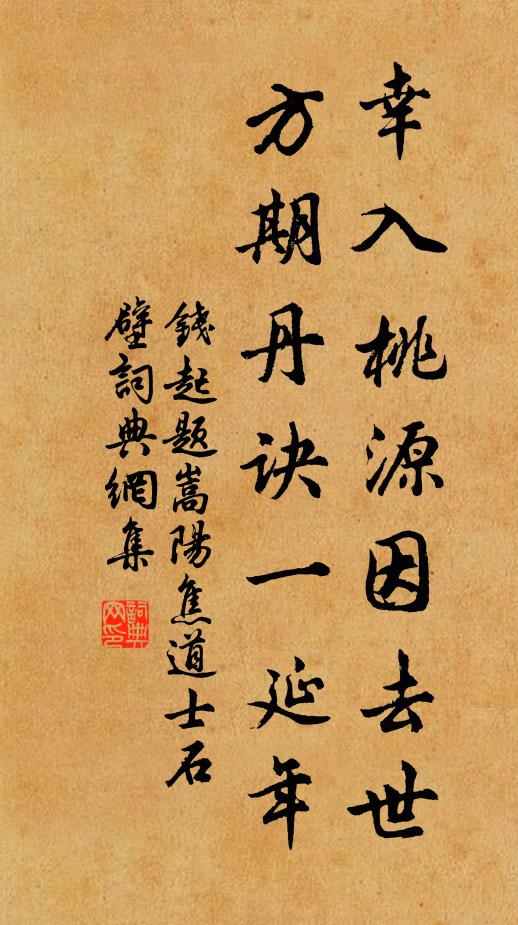 幸入桃源因去世
方期丹诀一延年
錢起题嵩陽焦道士石
壁詞典網集
詞典
网印